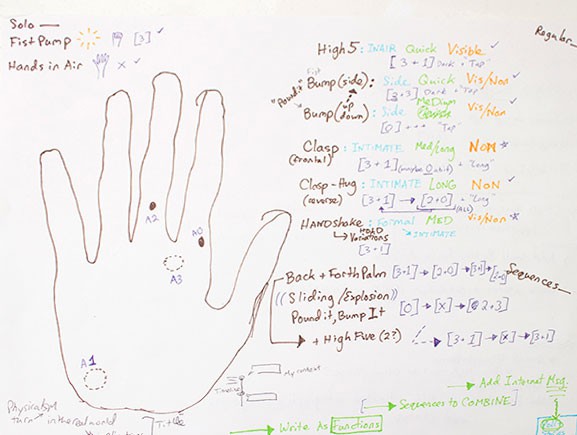 Solo —
Fist Pump [3] ✓
Hands in Air x ✓
Regular_
High 5: INAIR Quick Visible ✓
[3+1] Dark + "Top"
Fist
"Pound it" Bump (side): Side Quick Vis/Non ✓
[3+3] Dark + "Top"
Bump (up down): Side Medium Vis/Non ✓
[0] "Top"
Clasp: INTIMATE Med/Long Non *
(frontal) [3+1] (maybe 0 + "Long"
Clasp-Hug: INTIMATE LONG NON ✓
(reverse) [3+1] → [2+0] + "Long"
HANDSHAKE: Formal MED Vis/Non *
↳ HOLD Variations ↘ INTIMATE
[3+1]
Back + Forth Palm [3+1] → [2+0] → [3+1] → Sequences_
((Sliding/Explosion))
Pound it, Bump It [0] → [x] → 2,3]
+ High Five (2?) → [3+1] → [x] → [3+1]
A2
A0
A3
A1
My content
Timeline
Title
in the real world
turn
→ Add Internet Msg.
[→ Sequences to COMBINE]
→ Write As Functions